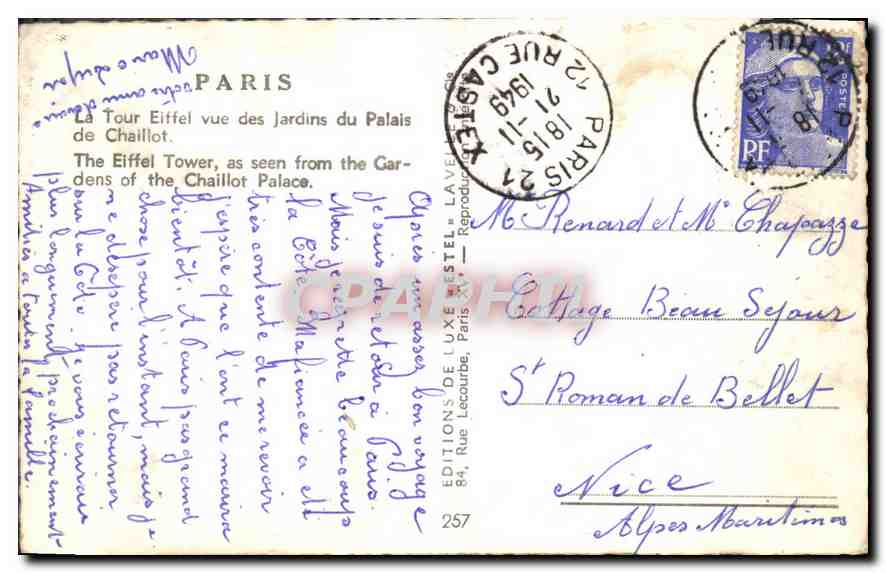 PARIS
La Tour Eiffel vue des Jardins du Palais
de Chaillot.
The Eiffel Tower, as seen from the Gar-
dens of the Chaillot Palace.
Après un assez bon voyage
je suis de retour à Paris.
Mais je regrette beaucoup
la Côte. Ma fiancée a été
très contente de me revoir
j'espère que l'ont ce marira
bientôt. A Paris pas grand
chose pour l'instant, mais je
ne désepère pas retourner
sur la Côte. Je vous écrirais
plus longuement prochainement
Amitiés à toute la famille.
Votre ami
EDITIONS DE LUXE "ESTEL" LAVELLE
84, Rue Lecourbe, Paris XVe — Reproduction
257
PARIS 21
12 RUE CASTEX
1815
21 -11
1949
POSTES
RF
Mr Renard et Mr Chapazze
Cottage Beau Séjour
St Roman de Bellet
Nice
Alpes Maritimes
CPAPHIL